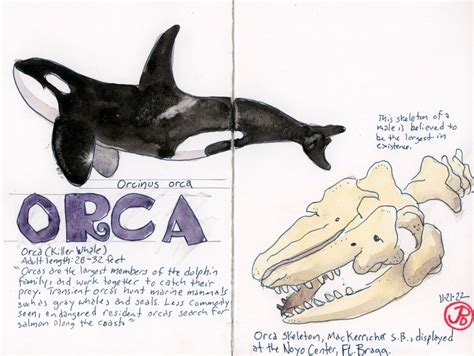 Orcinus orca
ORCA
Orca (Killer Whale)
Adult length: 28-32 feet
"Orcas are the largest members of the dolphin
family, and work together to catch their
prey. Transient orcas hunt marine mammals
such as gray whales and seals. Less commonly
seen, endangered resident orcas search for
salmon along the coast."
This skeleton of a
male is believed to
be the largest in
existence.
11-21-22
Orca Skeleton, MacKerricher S.B., displayed
at the Noyo Center, Ft. Bragg.